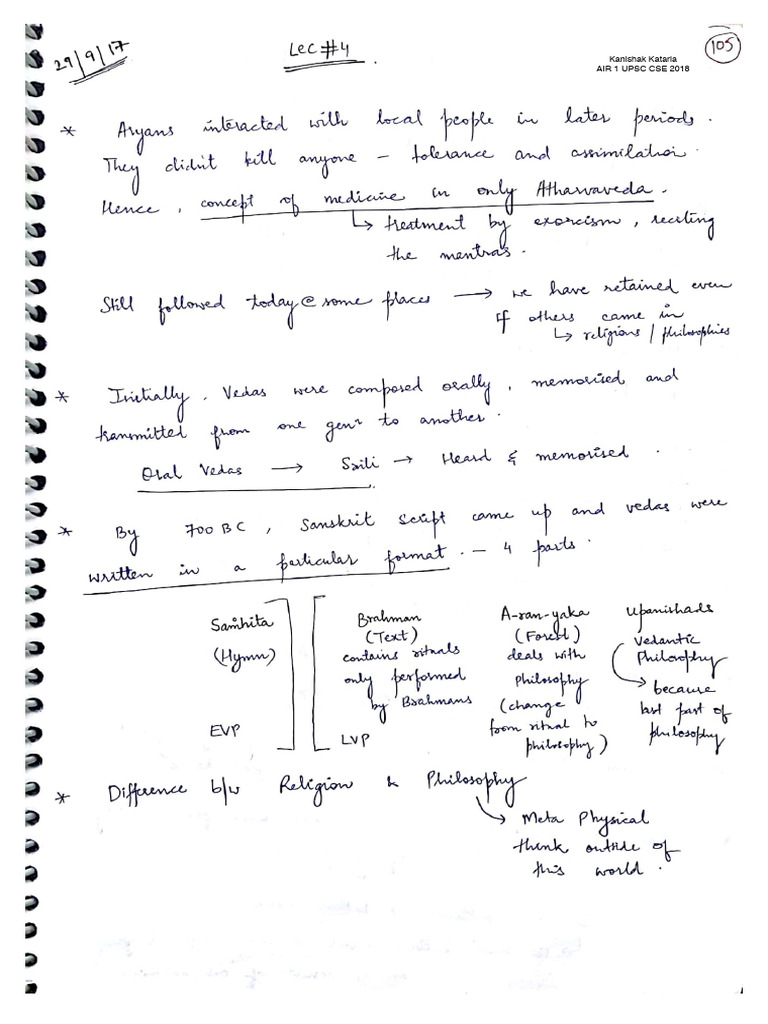 29/9/17
Lec #4
Kanishak Kataria
AIR 1 UPSC CSE 2018
105
* Aryans interacted with local people in later periods.
They didn't kill anyone – tolerance and assimilation.
Hence, concept of medicine in only Atharvaveda.
↳ treatment by exorcism, reciting
the mantras.
Still followed today @ some places → we have retained even
if others came in
↳ religions / philosophies
* Initially, Vedas were composed orally, memorised and
transmitted from one genⁿ to another.
Oral Vedas → Sruti → Heard & memorised.
* By 700 BC, Sanskrit script came up and vedas were
written in a particular format. – 4 parts.
Samhita
(Hymn)
EVP
Brahman
(Text)
contains rituals
only performed
by Brahmans
LVP
A-ran-yaka
(Forest)
deals with
philosophy
(change
from ritual to
philosophy)
Upanishads
Vedantic
Philosophy
→ because
last part of
philosophy
* Difference b/w Religion & Philosophy
↳ Meta Physical
think outside of
this world.